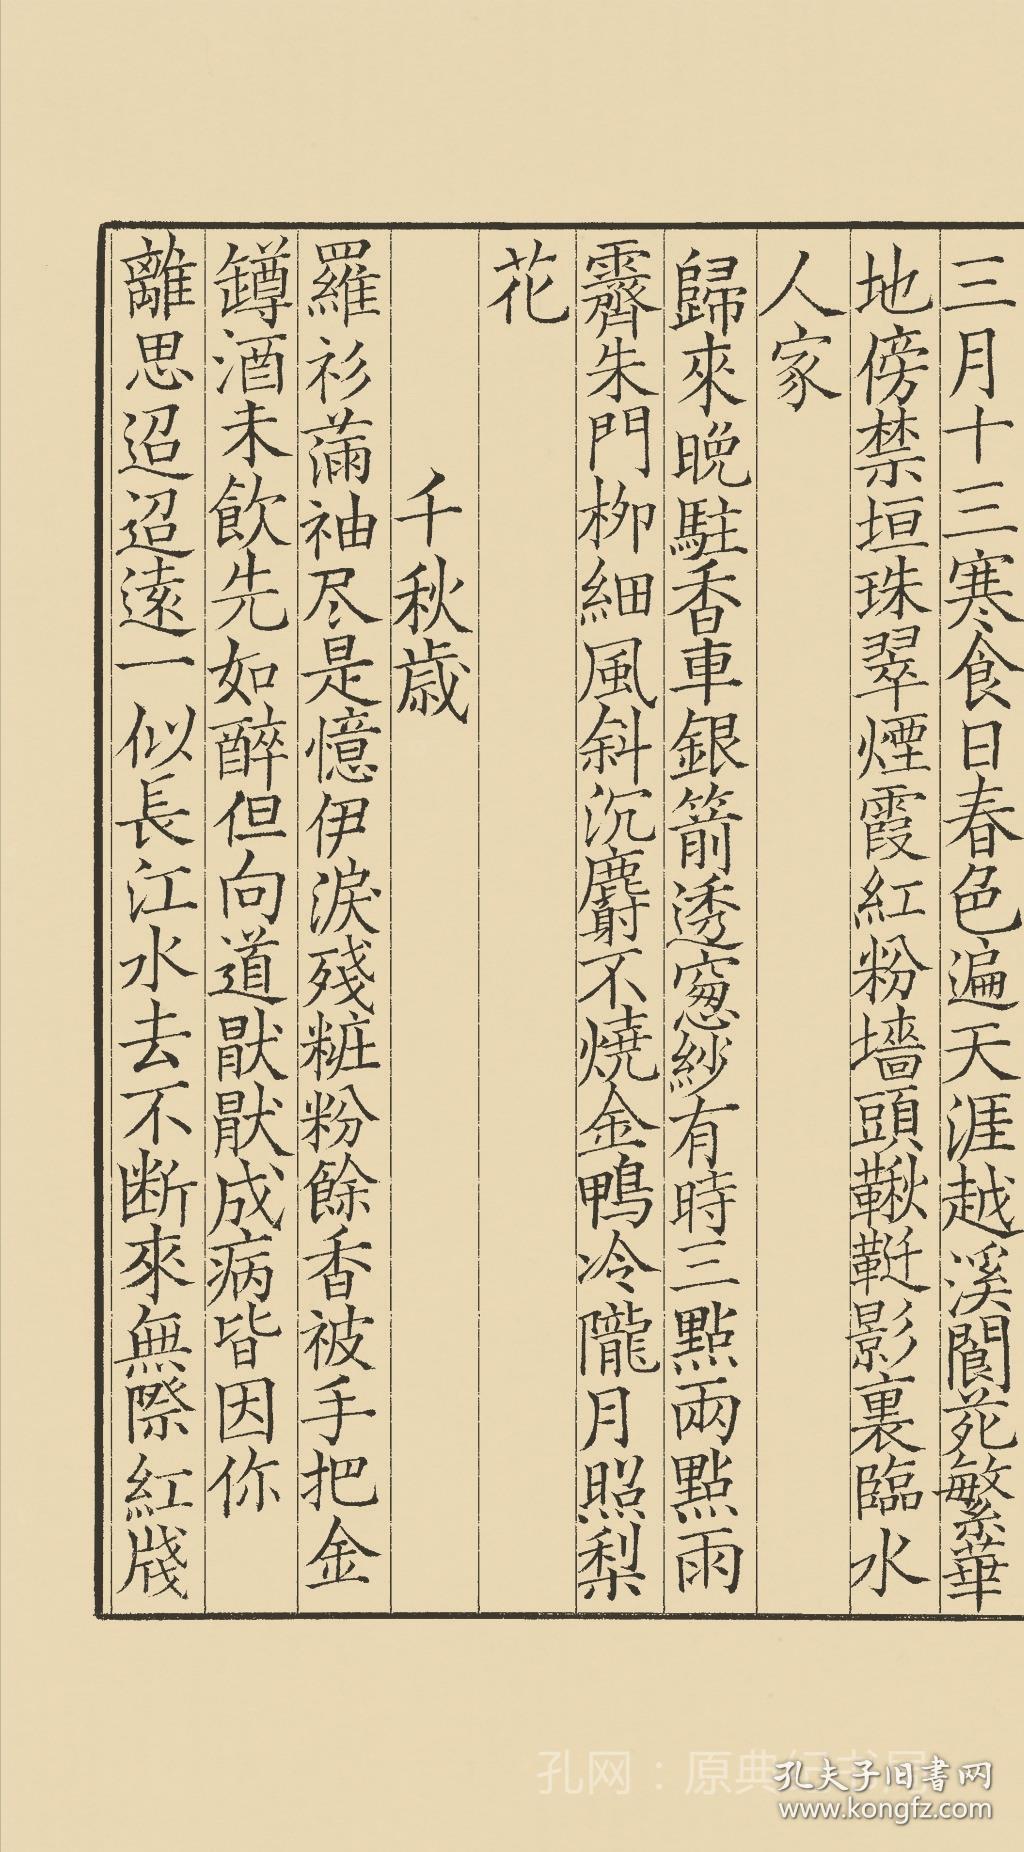 三月十三寒食日春色遍天涯越溪閬苑繁華
地傍禁垣珠翠煙霞紅粉墻頭鞦韆影裏臨水
人家
歸來晚駐香車銀箭透窻紗有時三點兩點雨
霽朱門柳細風斜沉麝不燒金鴨冷隴月照梨
花
千秋歲
羅衫滿袖尽是憶伊淚殘粧粉餘香被手把金
罇酒未飲先如醉但向道猒猒成病皆因你
離思迢迢遠一似長江水去不断來無際紅牋
孔网：原典纪书居
孔夫子旧書网
www.kongfz.com